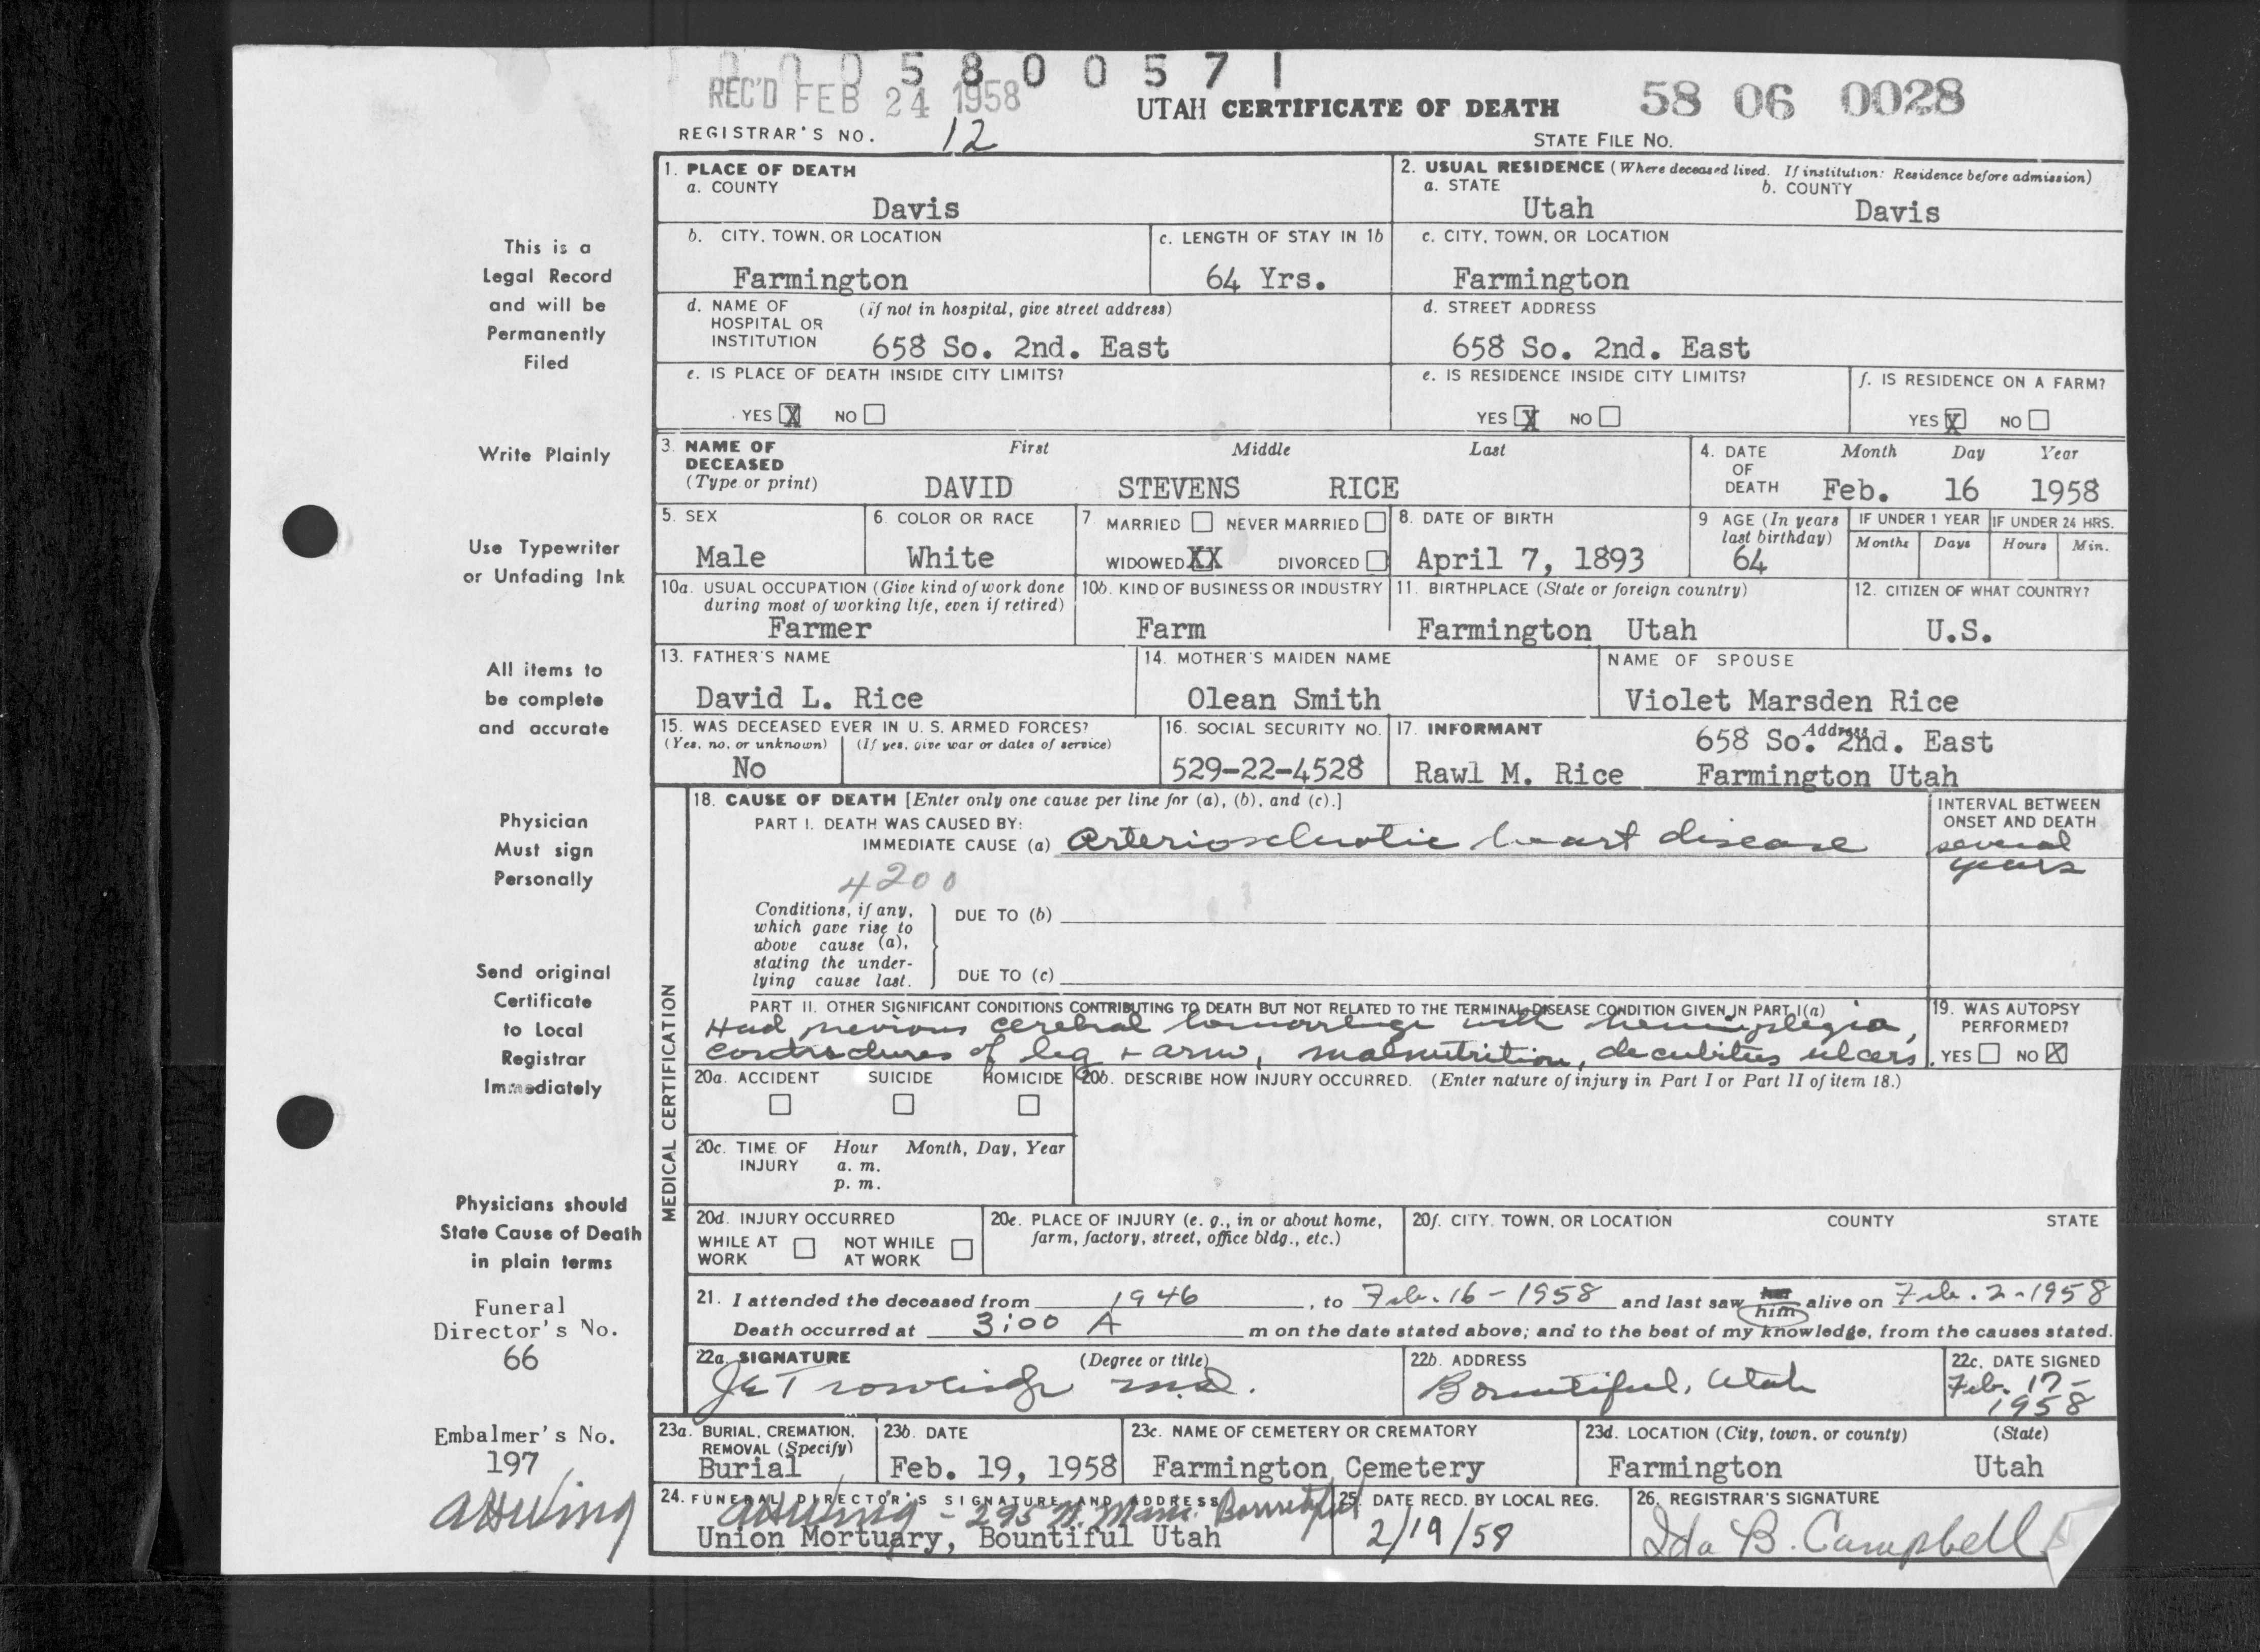 1 0 0 0 5 8 0 0 5 7 1
REC'D FEB 24 1958
UTAH CERTIFICATE OF DEATH
58 06 0028
REGISTRAR'S NO. 12
STATE FILE NO.
1. PLACE OF DEATH
a. COUNTY
Davis
2. USUAL RESIDENCE (Where deceased lived. If institution: Residence before admission)
a. STATE
Utah
b. COUNTY
Davis
b. CITY, TOWN, OR LOCATION
Farmington
c. LENGTH OF STAY IN 1b
64 Yrs.
c. CITY, TOWN, OR LOCATION
Farmington
d. NAME OF HOSPITAL OR INSTITUTION
(if not in hospital, give street address)
658 So. 2nd. East
d. STREET ADDRESS
658 So. 2nd. East
e. IS PLACE OF DEATH INSIDE CITY LIMITS?
YES X NO
e. IS RESIDENCE INSIDE CITY LIMITS?
YES X NO
f. IS RESIDENCE ON A FARM?
YES X NO
3. NAME OF DECEASED
(Type or print)
First Middle Last
DAVID STEVENS RICE
4. DATE OF DEATH
Month Day Year
Feb. 16 1958
5. SEX
Male
6. COLOR OR RACE
White
7 MARRIED NEVER MARRIED
WIDOWED XX DIVORCED
8. DATE OF BIRTH
April 7, 1893
9 AGE (In years last birthday)
64
IF UNDER 1 YEAR
Months Days
IF UNDER 24 HRS.
Hours Min.
10a. USUAL OCCUPATION (Give kind of work done during most of working life, even if retired)
Farmer
10b. KIND OF BUSINESS OR INDUSTRY
Farm
11. BIRTHPLACE (State or foreign country)
Farmington Utah
12. CITIZEN OF WHAT COUNTRY?
U.S.
13. FATHER'S NAME
David L. Rice
14. MOTHER'S MAIDEN NAME
Olean Smith
NAME OF SPOUSE
Violet Marsden Rice
15. WAS DECEASED EVER IN U. S. ARMED FORCES?
(Yes, no, or unknown) (If yes, give war or dates of service)
No
16. SOCIAL SECURITY NO.
529-22-4528
17. INFORMANT
Address
658 So. 2nd. East
Rawl M. Rice Farmington Utah
18. CAUSE OF DEATH [Enter only one cause per line for (a), (b), and (c).]
PART I. DEATH WAS CAUSED BY:
IMMEDIATE CAUSE (a) Arteriosclerotic heart disease
INTERVAL BETWEEN ONSET AND DEATH
several
years
4200
Conditions, if any,
which gave rise to
above cause (a),
stating the under-
lying cause last.
DUE TO (b)
DUE TO (c)
PART II. OTHER SIGNIFICANT CONDITIONS CONTRIBUTING TO DEATH BUT NOT RELATED TO THE TERMINAL DISEASE CONDITION GIVEN IN PART I(a)
Had previous cerebral hemorrhage with hemiplegia,
contractures of leg + arm, malnutrition, decubitus ulcers.
19. WAS AUTOPSY PERFORMED?
YES NO X
MEDICAL CERTIFICATION
20a. ACCIDENT SUICIDE HOMICIDE
20b. DESCRIBE HOW INJURY OCCURRED. (Enter nature of injury in Part I or Part II of item 18.)
20c. TIME OF INJURY
Hour Month, Day, Year
a. m.
p. m.
20d. INJURY OCCURRED
WHILE AT WORK NOT WHILE AT WORK
20e. PLACE OF INJURY (e. g., in or about home, farm, factory, street, office bldg., etc.)
20f. CITY, TOWN, OR LOCATION COUNTY STATE
21. I attended the deceased from 1946, to Feb. 16-1958 and last saw her him alive on Feb. 2-1958
Death occurred at 3:00 A m on the date stated above; and to the best of my knowledge, from the causes stated.
22a. SIGNATURE (Degree or title)
m.d.
22b. ADDRESS
Bountiful, Utah
22c. DATE SIGNED
Feb. 17-
1958
23a. BURIAL, CREMATION, REMOVAL (Specify)
Burial
23b. DATE
Feb. 19, 1958
23c. NAME OF CEMETERY OR CREMATORY
Farmington Cemetery
23d. LOCATION (City, town, or county) (State)
Farmington Utah
24. FUNERAL DIRECTOR'S SIGNATURE AND ADDRESS
- 295 N. Main Bountiful
Union Mortuary, Bountiful Utah
25. DATE RECD. BY LOCAL REG.
2/19/58
26. REGISTRAR'S SIGNATURE
Ida B. Campbell
This is a
Legal Record
and will be
Permanently
Filed
Write Plainly
Use Typewriter
or Unfading Ink
All items to
be complete
and accurate
Physician
Must sign
Personally
Send original
Certificate
to Local
Registrar
Immediately
Physicians should
State Cause of Death
in plain terms
Funeral
Director's No.
66
Embalmer's No.
197